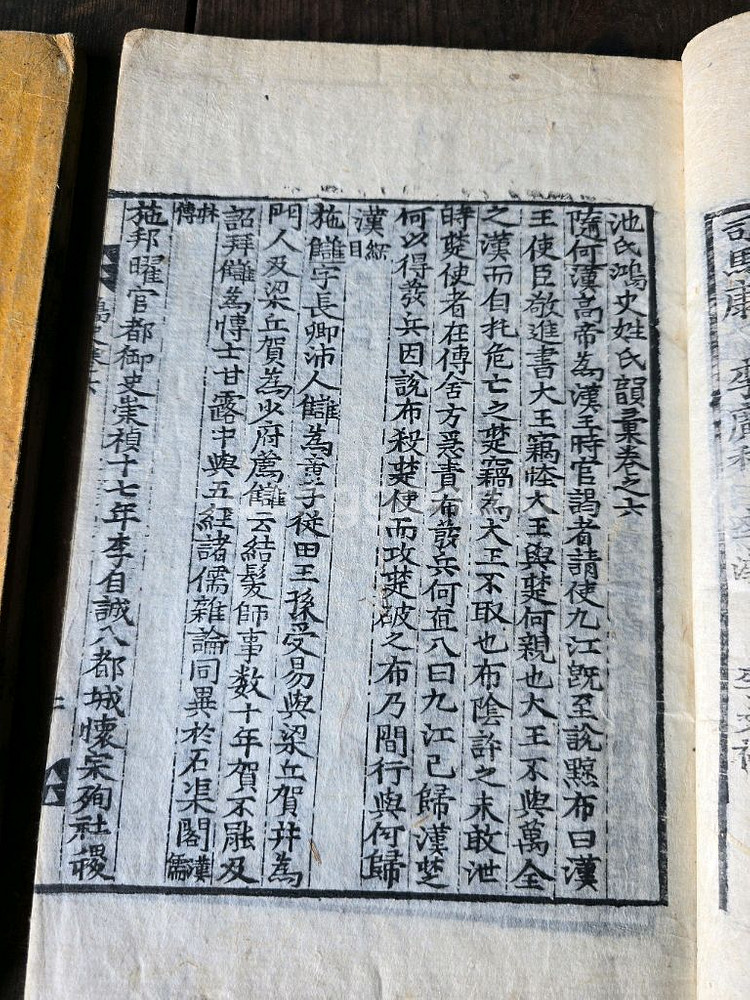 池氏鴻史姓氏韻彙卷之六
隨何漢高帝為漢王時官謁者請使九江旣至說黥布曰漢
王使臣敬進書大王竊怪大王與楚何親也大王不與萬全
之漢而自托危亡之楚竊為大王不取也布陰許之未敢泄
時楚使者在傳舍方急責布發兵何直入曰九江已歸漢楚
何以得發兵因說布殺楚使而攻楚破之布乃間行與何歸
漢綜目
施讎字長卿沛人讎為童子從田王孫受易與梁丘賀幷為
門人及梁丘賀為少府薦讎云結髮師事数十年賀不能及
詔拜讎為博士甘露中與五經諸儒雜論同異於石渠閣漢儒
林傳
施邦曜官都御史崇禎十七年李自誠入都城懷宗殉社稷
鴻史卷六
司馬康 李廣利